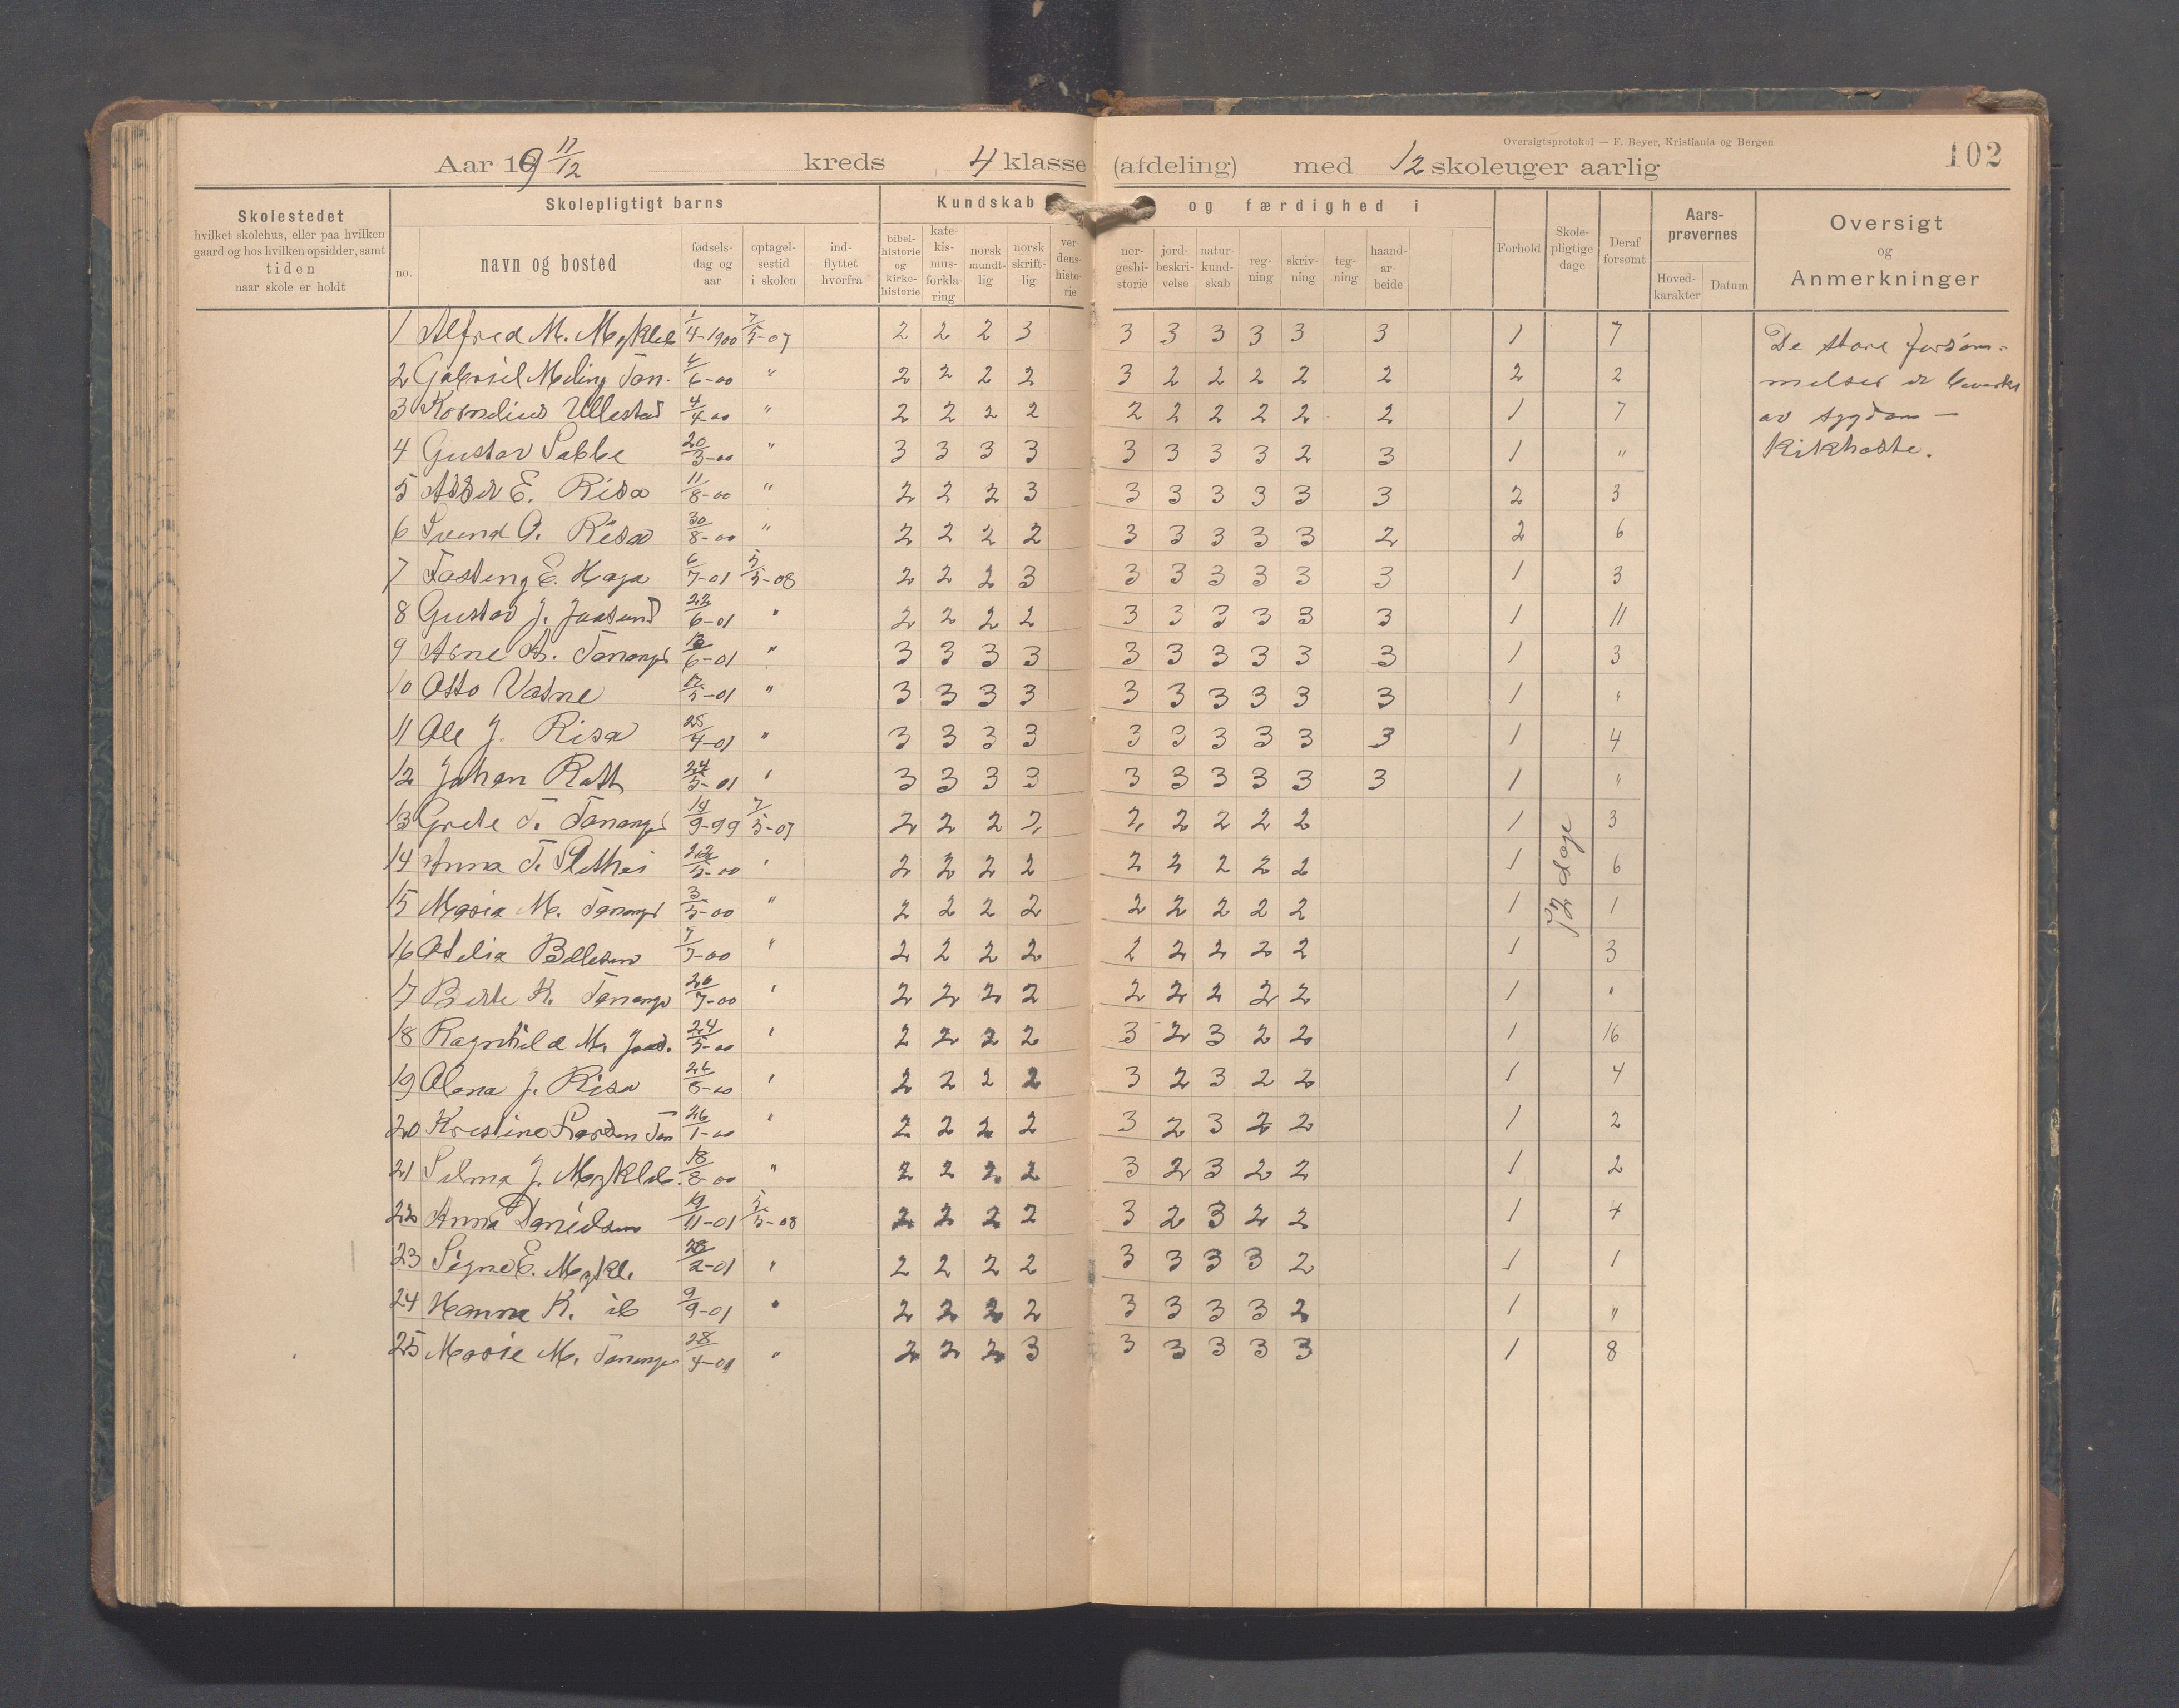 Oversigtsprotokol — F. Beyer, Kristiania og Bergen
102
Aar 19 11/12 kreds 4 klasse (afdeling) med 12 skoleuger aarlig
Skolestedet
hvilket skolehus, eller paa hvilken
gaard og hos hvilken opsidder, samt
tiden
naar skole er holdt
Skolepligtigt barns
no.
navn og bosted
fødsels-
dag og
aar
optagel-
sestid
i skolen
ind-
flyttet
hvorfra
Kundskab og færdighed i
bibel-
historie
og
kirke-
historie
kate-
kis-
mus-
forkla-
ring
norsk
mundt-
lig
norsk
skrift-
lig
ver-
dens-
histo-
rie
nor-
geshi-
storie
jord-
beskri-
velse
natur-
kund-
skab
reg-
ning
skriv-
ning
teg-
ning
haand-
ar-
beide
Forhold
Skole-
pligtige
dage
Deraf
forsømt
Aars-
prøvernes
Hoved-
karakter
Datum
Oversigt
og
Anmerkninger
1 Alfred M. Mykleb 1/4-1900 7/5-07 2 2 2 3 3 3 3 3 3 3 1 7
2 Gabriel Meling Tan. 6/6-00 " 2 2 2 2 3 2 2 2 2 2 2 2
3 Kornelius Ullestad 4/4-00 " 2 2 2 2 2 2 2 2 2 2 1 7
4 Gustav Sabbe 20/3-00 " 3 3 3 3 3 3 3 3 2 3 1 "
5 Asser E. Risa 11/8-00 " 2 2 2 3 3 3 3 3 3 3 2 3
6 Svend O. Risa 30/8-00 " 2 2 2 2 3 3 3 3 3 2 2 6
7 Tasteng E. Haga 6/7-01 5/5-08 2 2 2 3 3 3 3 3 3 3 1 3
8 Gustav J. Jaasund 22/6-01 " 2 2 2 2 3 3 3 3 3 3 1 11
9 Arne A. Tananger /6-01 " 3 3 3 3 3 3 3 3 3 3 1 3
10 Otto Vatne 17/5-01 " 3 3 3 3 3 3 3 3 3 3 1 "
11 Ole J. Risa 25/4-01 " 3 3 3 3 3 3 3 3 3 3 1 4
12 Johan Rott 24/5-01 " 3 3 3 3 3 3 3 3 3 3 1 "
13 Grete T. Tananger 14/9-99 7/5-07 2 2 2 2 2 2 2 2 2 1 3
14 Anna T. Slethei 22/5-00 " 2 2 2 2 2 2 2 2 2 1 6
15 Maria M. Tananger 3/5-00 " 2 2 2 2 2 2 2 2 2 1 1
16 Otelia Bellesen 7/7-00 " 2 2 2 2 2 2 2 2 2 1 3
17 Berte K. Tananger 20/7-00 " 2 2 2 2 2 2 2 2 2 1 "
18 Ragnhild M. Jaas. 24/5-00 " 2 2 2 2 3 2 3 2 2 1 16
19 Olena J. Risa 26/8-00 " 2 2 2 2 3 2 3 2 2 1 4
20 Kristine Tan 26/1-00 " 2 2 2 2 3 2 3 2 2 1 2
21 Selma J. Mykleb. 18/8-00 " 2 2 2 2 3 2 3 2 2 1 2
22 Anna Danielsen 19/11-01 5/5-08 2 2 2 2 3 2 3 2 2 1 4
23 Signe E. Mykl. 28/2-01 " 2 2 2 2 3 3 3 3 2 1 1
24 Hanna K. ib 9/9-01 " 2 2 2 2 3 3 3 3 2 1 "
25 Marie M. Tananger 28/4-01 " 2 2 2 3 3 3 3 3 3 1 8
72 dage
De store forsøm-
melser er bevirket
av sygdom —
Kikhoste.